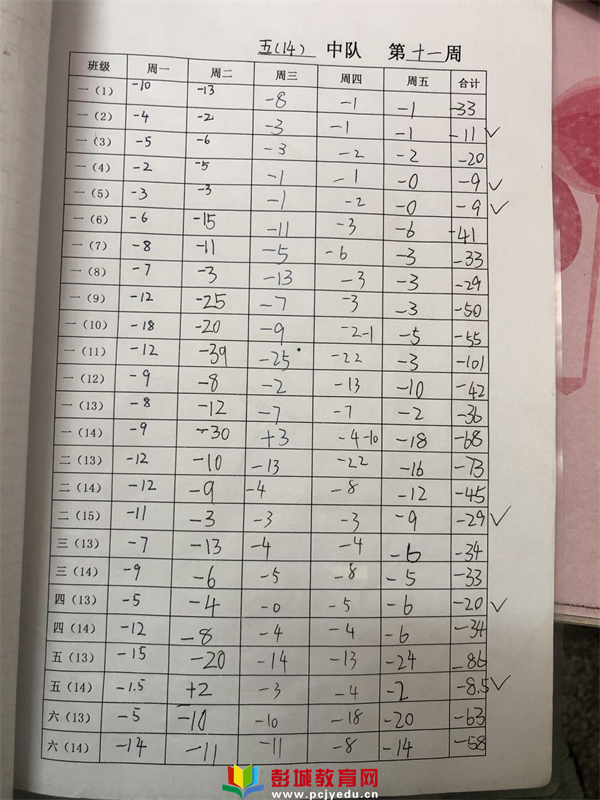 五(14) 中队 第十一周
班级 周一 周二 周三 周四 周五 合计
一（1） -10 -13 -8 -1 -1 -33
一（2） -4 -2 -3 -1 -1 -11 ✓
一（3） -5 -6 -3 -2 -2 -20
一（4） -2 -5 -1 -1 -0 -9 ✓
一（5） -3 -3 -1 -2 -0 -9 ✓
一（6） -6 -15 -11 -3 -6 -41
一（7） -8 -11 -5 -6 -3 -33
一（8） -7 -3 -13 -3 -3 -29
一（9） -12 -25 -7 -3 -3 -50
一（10） -18 -20 -9 -2-1 -5 -55
一（11） -12 -39 -25 -22 -3 -101
一（12） -9 -8 -2 -13 -10 -42
一（13） -8 -12 -7 -7 -2 -36
一（14） -9 -30 +3 -4-10 -18 -68
二（13） -12 -10 -13 -22 -16 -73
二（14） -12 -9 -4 -8 -12 -45
二（15） -11 -3 -3 -3 -9 -29 ✓
三（13） -7 -13 -4 -4 -6 -34
三（14） -9 -6 -5 -8 -5 -33
四（13） -5 -4 -0 -5 -6 -20 ✓
四（14） -12 -8 -4 -4 -6 -34
五（13） -15 -20 -14 -13 -24 -86
五（14） -1.5 +2 -3 -4 -2 -8.5 ✓
六（13） -5 -10 -10 -18 -20 -63
六（14） -14 -11 -11 -8 -14 -58
彭城教育网
www.pcjyedu.cn